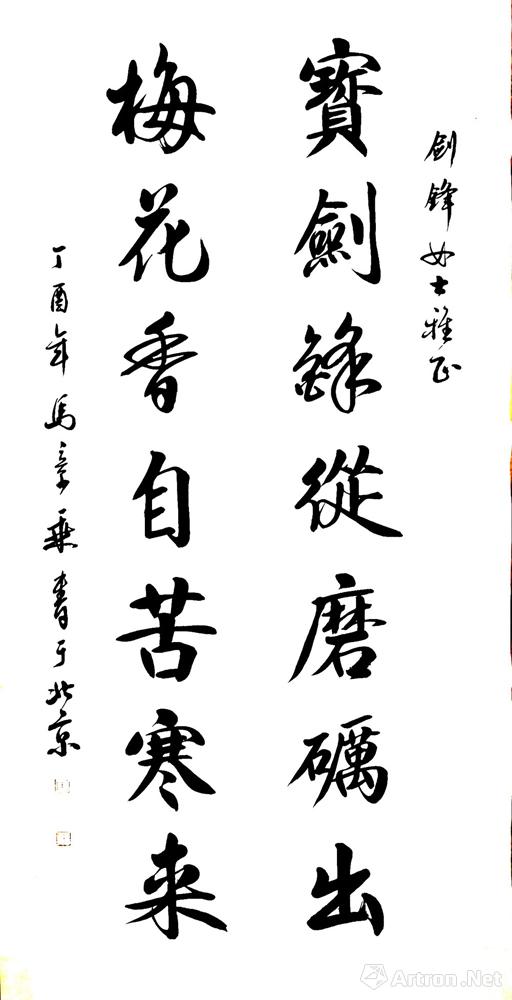 剑锋女士雅正
寶劍鋒從磨礪出
梅花香自苦寒来
丁酉年馬章乘書于北京
Artron.Net